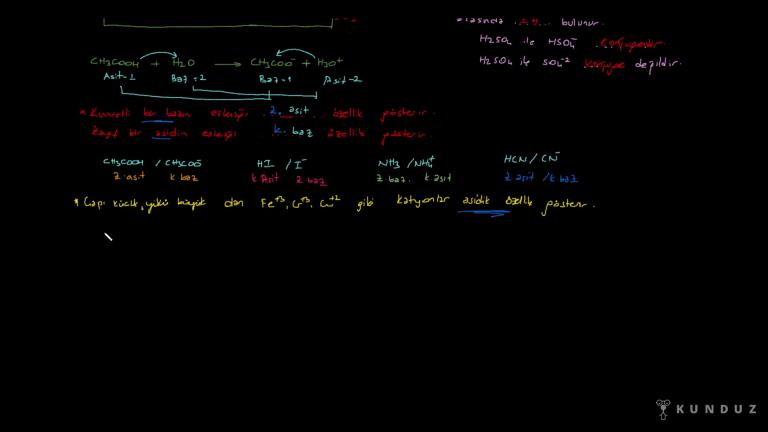 arasında .1 H.. bulunur.
H2SO4 ile HSO4⁻ .. konjugedir.
H2SO4 ile SO4⁻² konjuge değildir.
CH3COOH + H2O → CH3COO⁻ + H3O⁺
Asit-1 Baz-2 Baz-1 Asit-2
* Kuvvetli bir bazın eşleniği .z. asit.. özellik gösterir.
Zayıf bir asidin eşleniği ..k. baz özellik gösterir.
CH3COOH / CH3COO⁻ HI / I⁻ NH3 / NH4⁺ HCN / CN⁻
z.asit k baz k Asit z baz z baz. k asit z asit / k baz
* Çapı küçük, yükü büyük olan Fe⁺³, Cr⁺³, Cu⁺² gibi katyonlar asidik özellik gösterir.
KUNDUZ